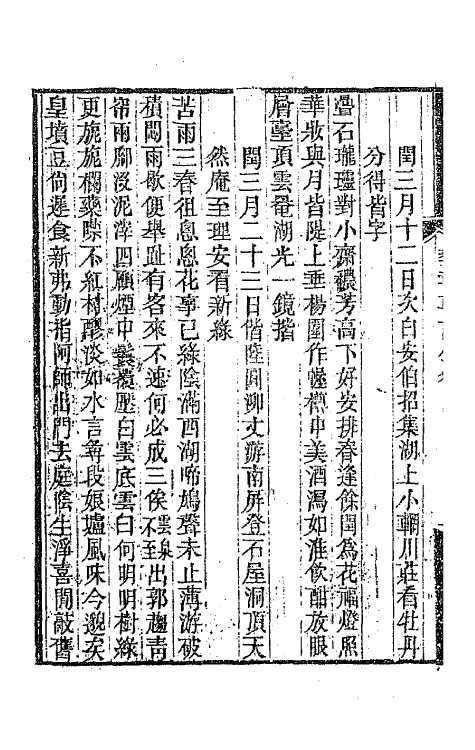 閏三月十二日次白安伯招集湖上小輞川莊看牡丹
分得皆字
疊石瓏瓏對小齋穠芳高下好安排春逢餘閏爲花福燈照
華妝與月皆隄上垂楊圍作幄樽中美酒瀉如淮飲酣放眼
層臺頂雲奄湖光一鏡揩
閏三月二十三日偕陸閬泖丈游南屏登石屋洞頂天
然庵至理安看新綠
苦雨三春徂悤悤花事已綠陰滿西湖啼鳩聲未止薄游破
積悶雨歇便舉趾有客來不速何必成三俟雲泉不至出郭趨青
帘雨腳沒泥滓四顧煙中鬟亂壓白雲底雲白何明明樹綠
更旎旎欄藥噤不紅村釀淡如水言尋段娘壚風味今邈矣
皇墳豆尙遲食新弗動指阿師出門去庭陰生淨喜閒敲舊